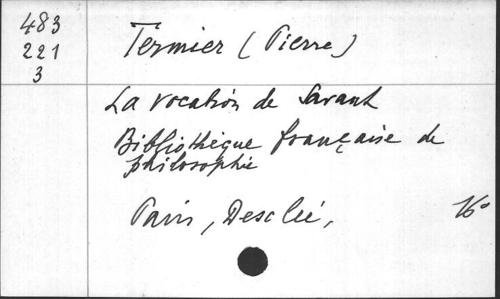 483
221
3
Termier (Pierre)
La vocation de Savant
Bibliothèque française de
philosophie
Paris, Desclée, 16°